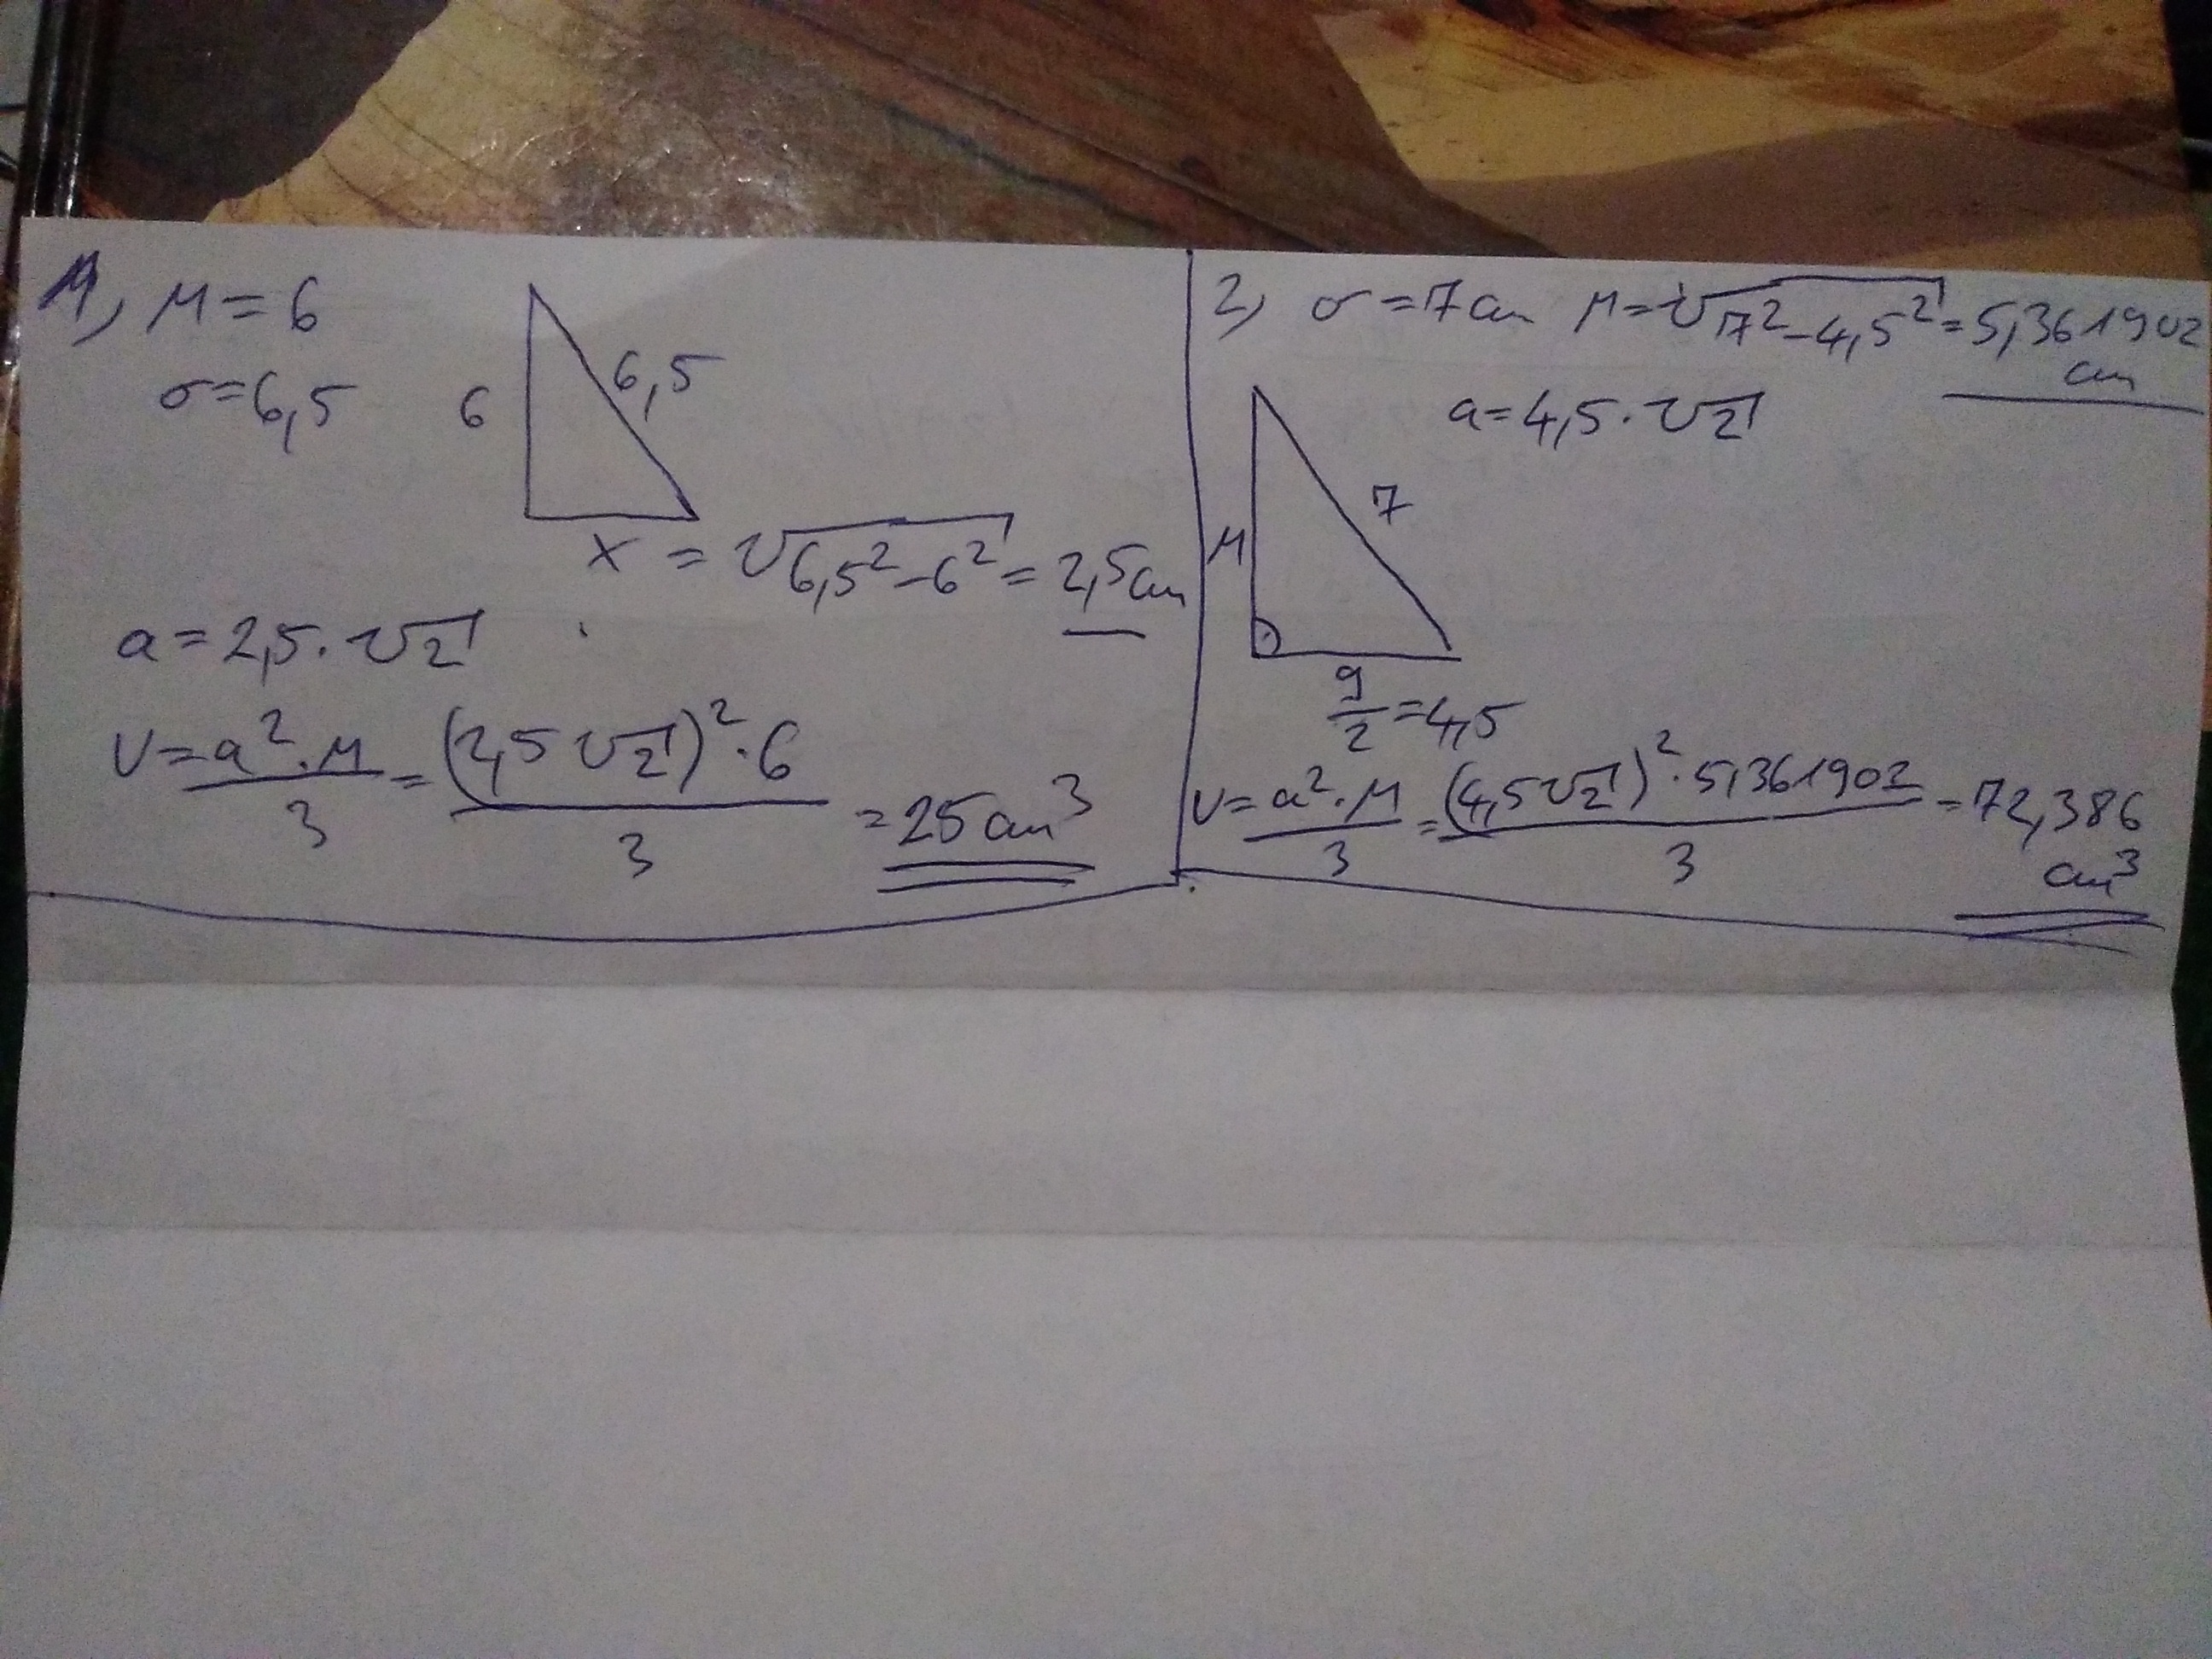 1, M = 6
σ = 6,5
6
6,5
x = √6,5² - 6² = 2,5 cm
a = 2,5 · √2
V = a² · M / 3 = (2,5 √2)² · 6 / 3 = 25 cm³
2, σ = 7 cm M = √7² - 4,5² = 5,361902 cm
a = 4,5 · √2
7
M
9/2 = 4,5
V = a² · M / 3 = (4,5 √2)² · 5,361902 / 3 = 72,386 cm³